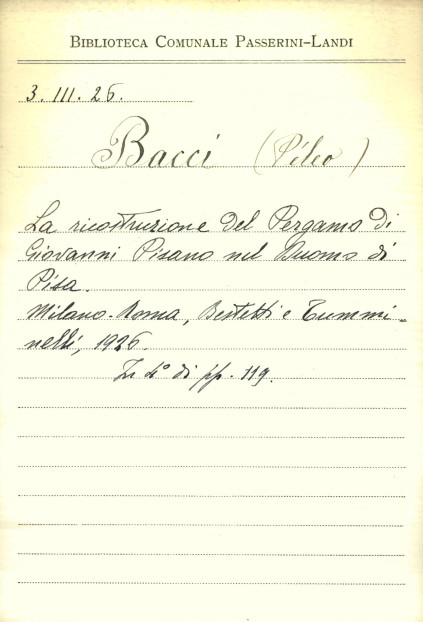 BIBLIOTECA COMUNALE PASSERINI-LANDI
3. III. 26.
Bacci (Pèleo)
La ricostruzione del Pergamo di
Giovanni Pisano nel Duomo di
Pisa.
Milano-Roma, Bestetti e Tummi-
nelli, 1926.
In 4° di pp. 119.